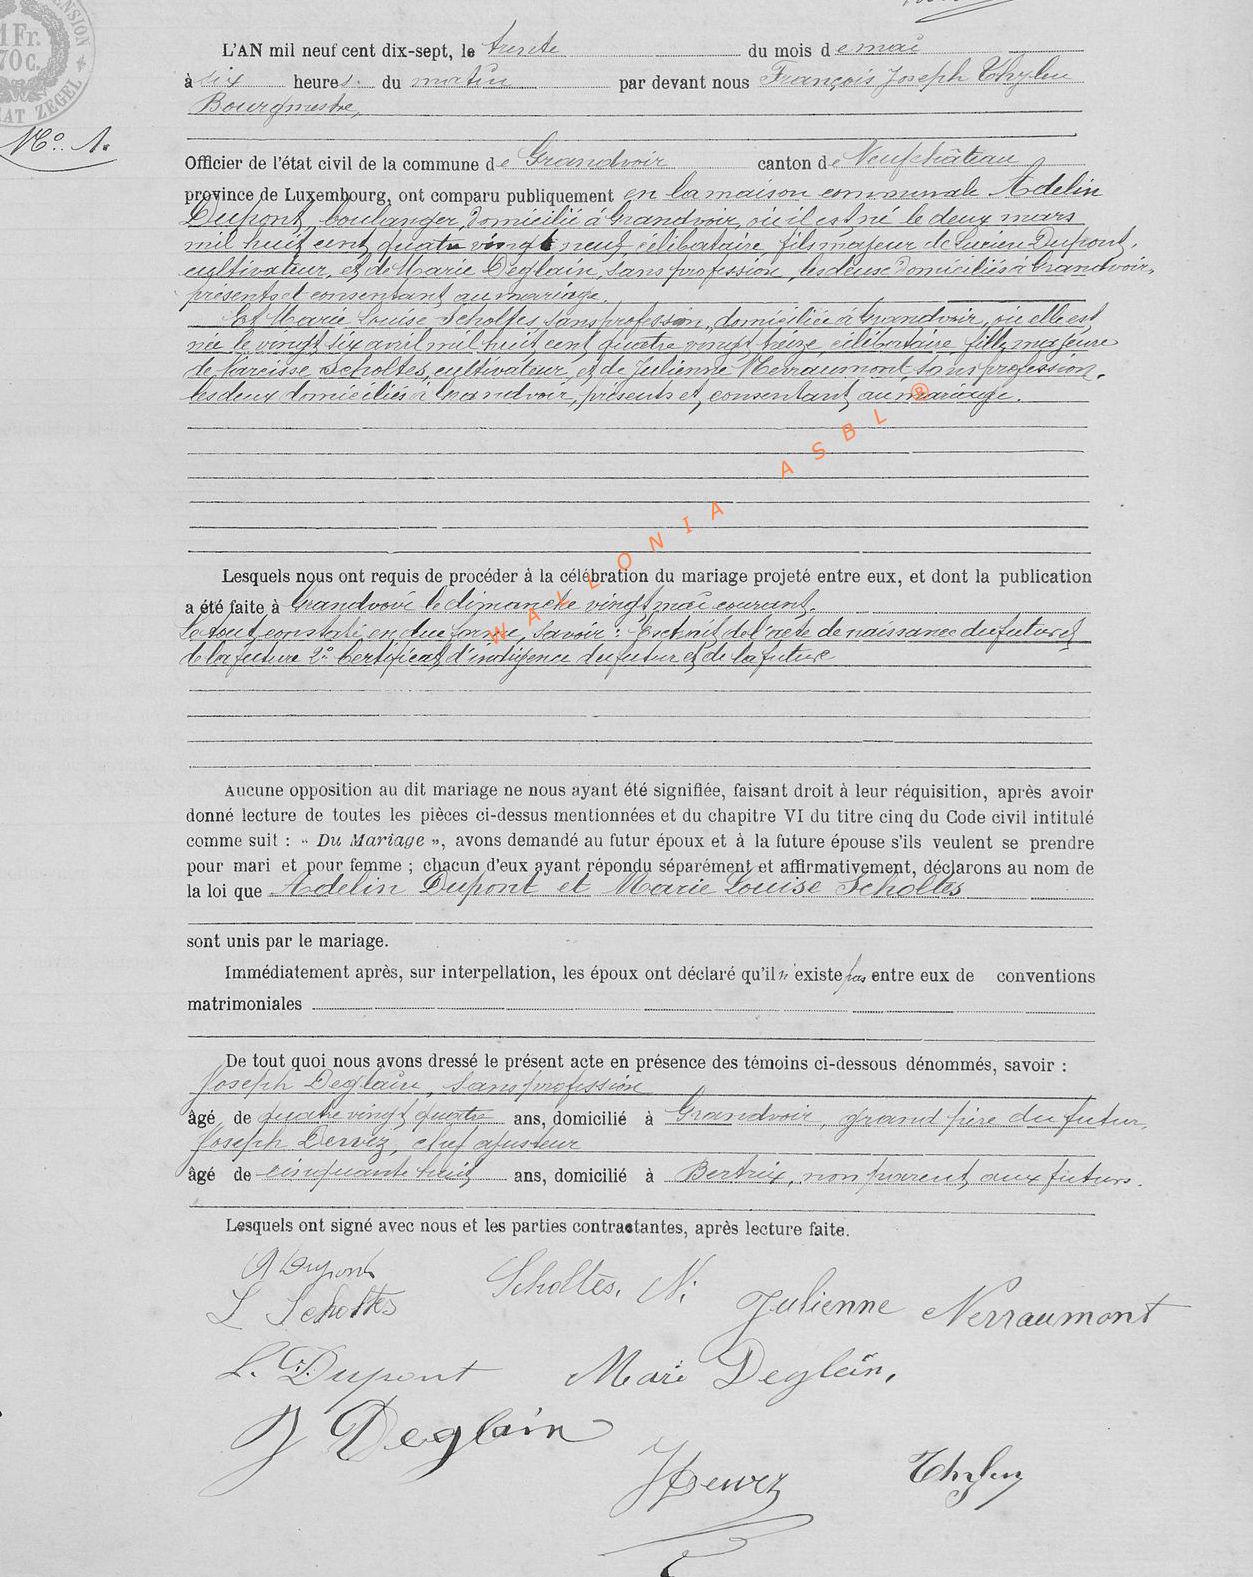 1 Fr.
70 c.
ZEGEL
N° 1.
L'AN mil neuf cent dix-sept, le trente du mois de mai
à six heures du matin par devant nous François Joseph Thyleu
Bourgmestre,
Officier de l'état civil de la commune de Grandvoir canton de Neufchâteau
province de Luxembourg, ont comparu publiquement en la maison communale Adelin
Dupont, boulanger, domicilié à Grandvoir, où il est né le deux mars
mil huit cent quatre vingt neuf, célibataire, fils majeur de Lucien Dupont,
cultivateur, et de Marie Deglain, sans profession, les deux domiciliés à Grandvoir,
présents et consentant au mariage.
Et Marie Louise Scholtes, sans profession, domiciliée à Grandvoir, où elle est
née le vingt six avril mil huit cent quatre vingt treize, célibataire, fille majeure
de Narcisse Scholtes, cultivateur, et de Julienne Nerraumont, sans profession,
les deux domiciliés à Grandvoir, présents et consentant au mariage.
WALLONIA ASBL ®
Lesquels nous ont requis de procéder à la célébration du mariage projeté entre eux, et dont la publication
a été faite à Grandvoir le dimanche vingt mai courant.
Le tout constaté en due forme, savoir : Extrait de l'acte de naissance du futur et
de la future 2° Certificat d'indigence du futur et de la future
Aucune opposition au dit mariage ne nous ayant été signifiée, faisant droit à leur réquisition, après avoir
donné lecture de toutes les pièces ci-dessus mentionnées et du chapitre VI du titre cinq du Code civil intitulé
comme suit : « Du Mariage », avons demandé au futur époux et à la future épouse s'ils veulent se prendre
pour mari et pour femme ; chacun d'eux ayant répondu séparément et affirmativement, déclarons au nom de
la loi que Adelin Dupont et Marie Louise Scholtes
sont unis par le mariage.
Immédiatement après, sur interpellation, les époux ont déclaré qu'il n'existe pas entre eux de conventions
matrimoniales
De tout quoi nous avons dressé le présent acte en présence des témoins ci-dessous dénommés, savoir :
Joseph Deglain, sans profession
âgé de quatre vingt quatre ans, domicilié à Grandvoir, grand père du futur,
Joseph Dewez, chef ajusteur
âgé de cinquante huit ans, domicilié à Bertrix, non parent aux futurs.
Lesquels ont signé avec nous et les parties contractantes, après lecture faite.
A Dupont
L Scholtes
Scholtes. N.
Julienne Nerraumont
L. Dupont
Marie Deglain,
J Deglain
J Dewez